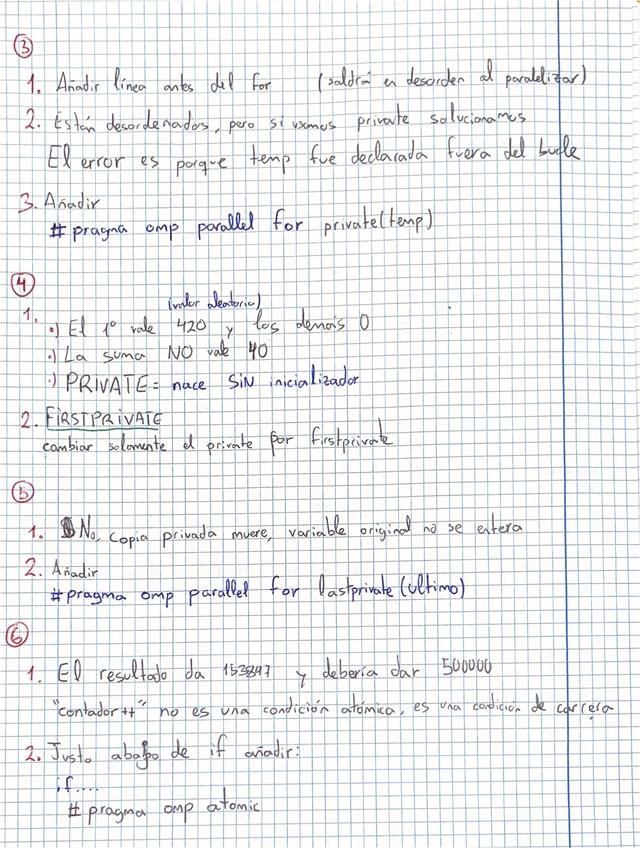 3
1. Añadir línea antes del for (saldrá en desorden al paralelizar)
2. Están desordenados, pero si usamos private solucionamos
El error es porque temp fue declarada fuera del bucle
3. Añadir
#pragma omp parallel for private(temp)
4
(valor aleatorio)
1. •) El 1º vale 420 y los demás 0
•) La suma NO vale 40
•) PRIVATE = nace SIN inicializador
2. FIRSTPRIVATE
cambiar solamente el private por firstprivate
5
1. No, copia privada muere, variable original no se entera
2. Añadir
#pragma omp parallel for lastprivate(ultimo)
6
1. El resultado da 153847 y debería dar 500000
"contador++" no es una condición atómica, es una condición de carrera
2. Justo abajo de if añadir:
if....
#pragma omp atomic